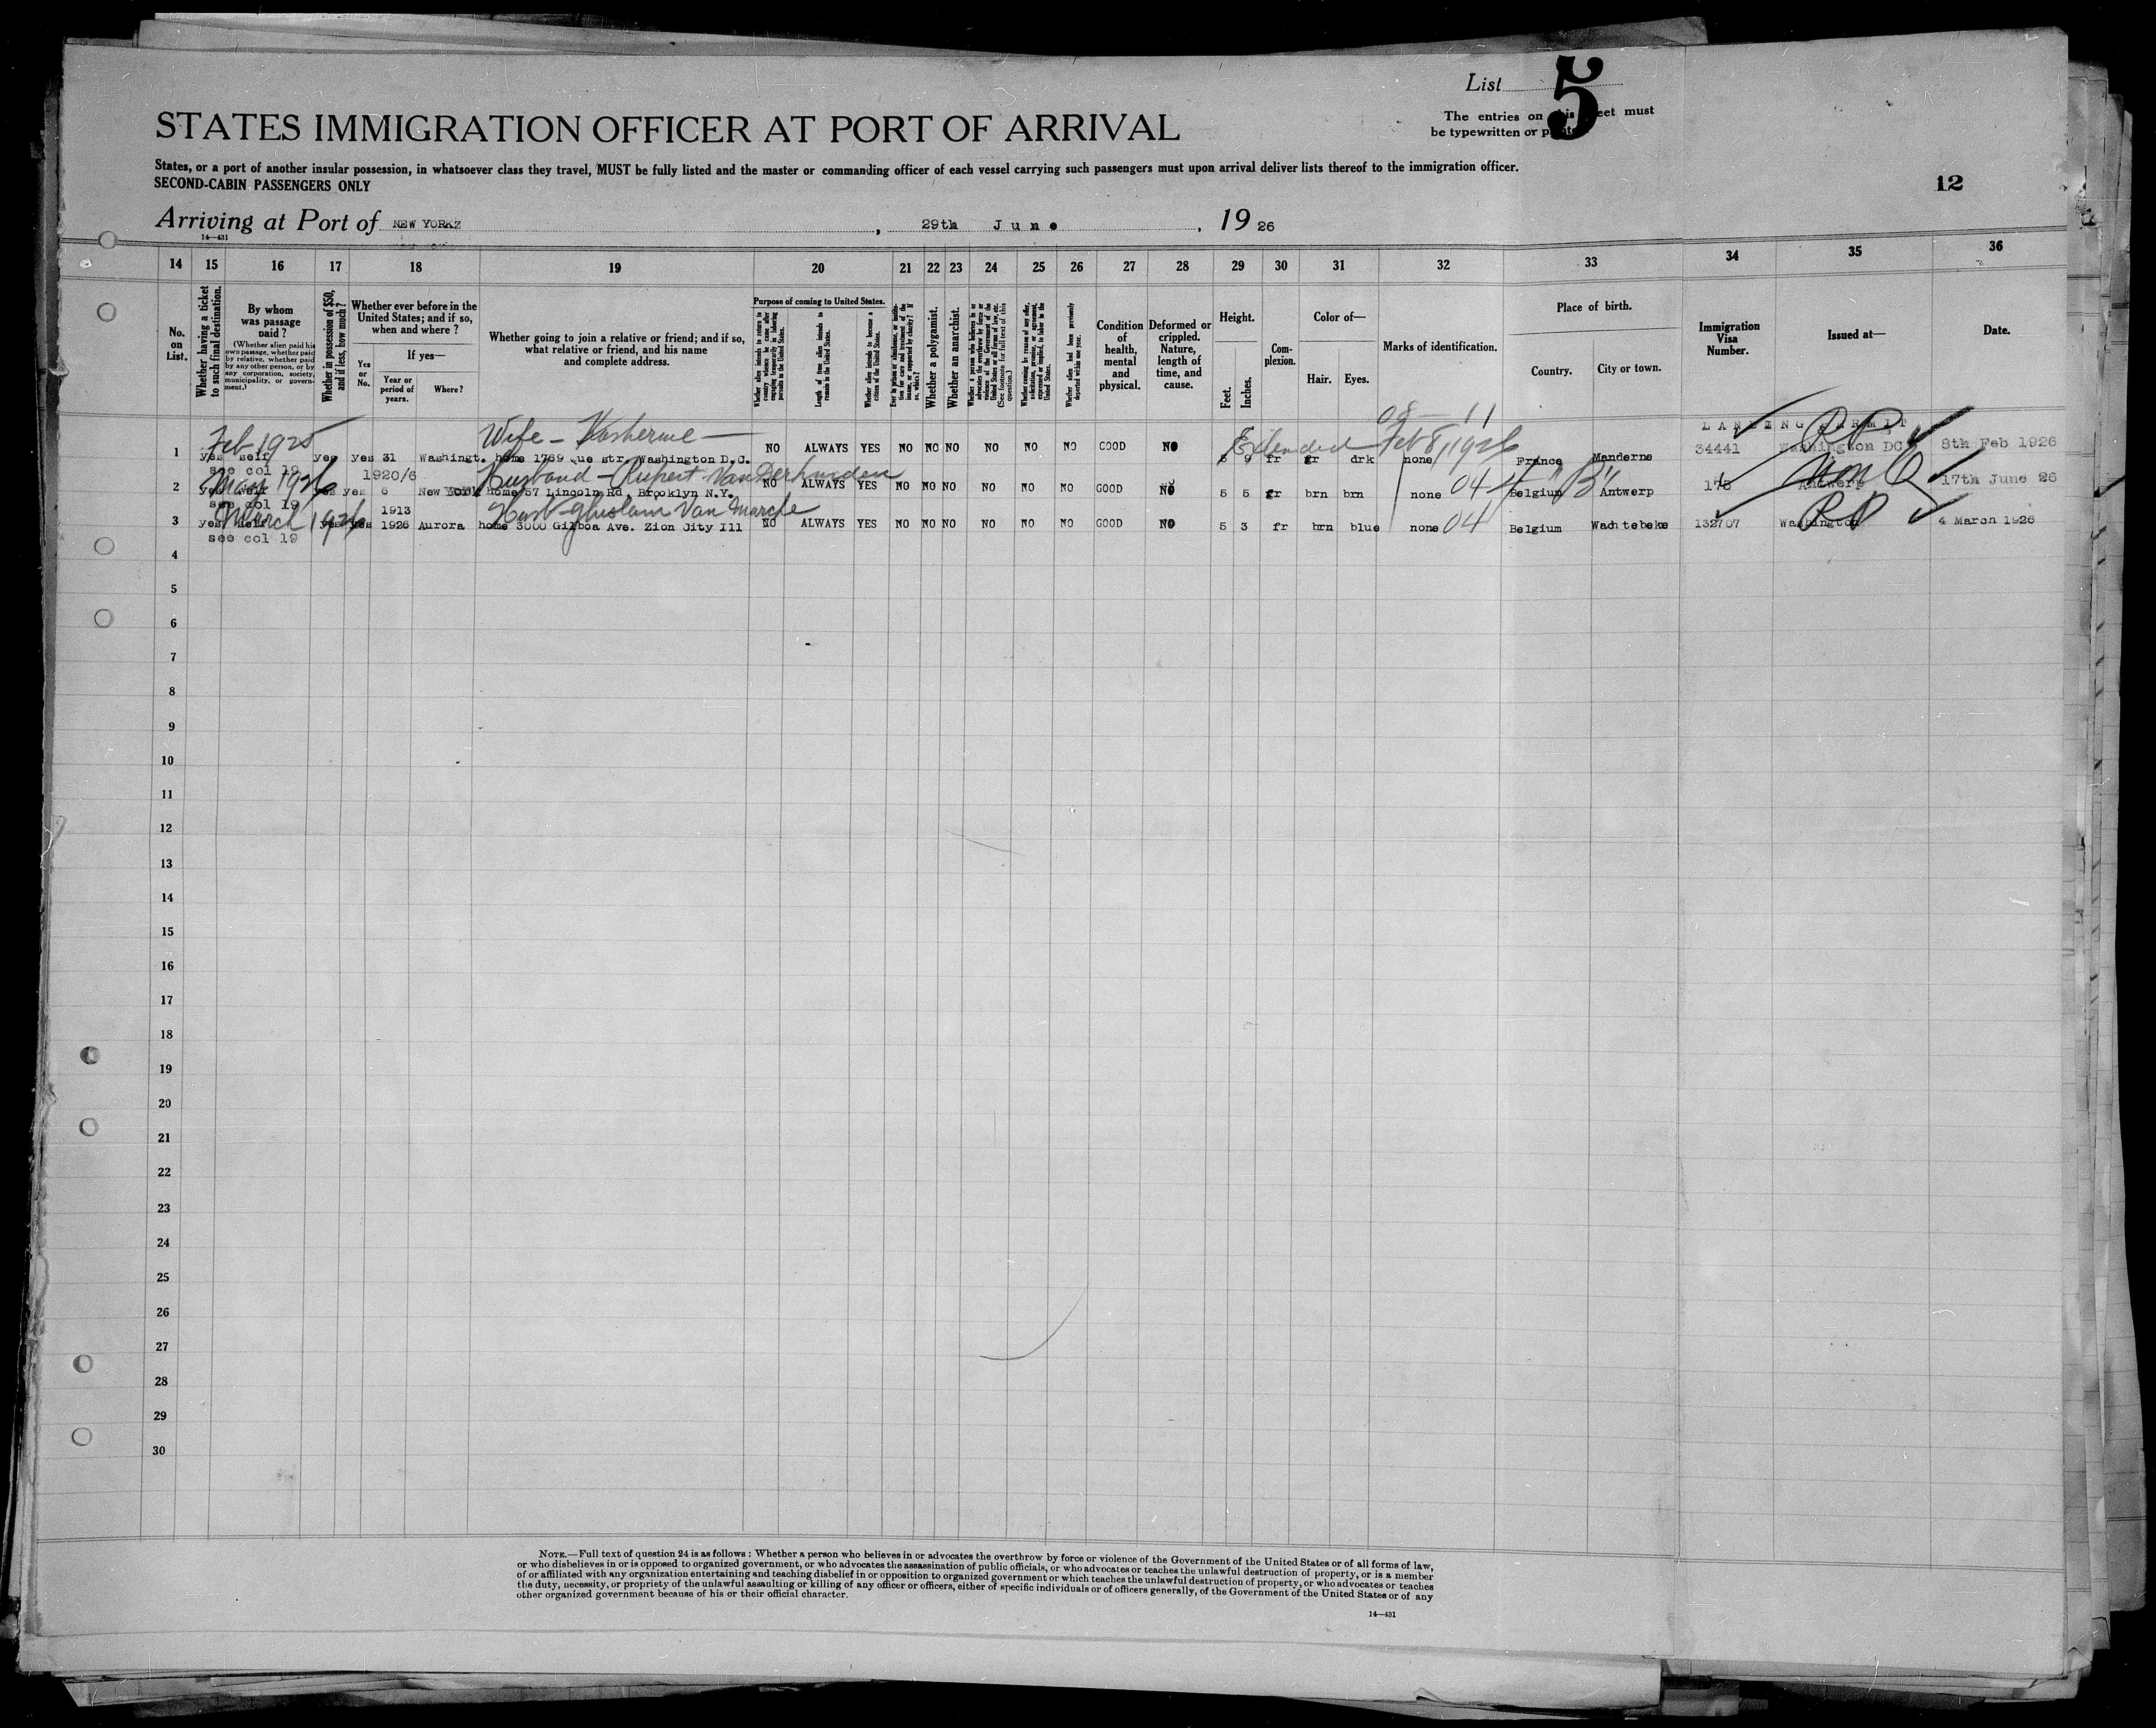 List 5
The entries on this sheet must
be typewritten or printed
STATES IMMIGRATION OFFICER AT PORT OF ARRIVAL
States, or a port of another insular possession, in whatsoever class they travel, MUST be fully listed and the master or commanding officer of each vessel carrying such passengers must upon arrival deliver lists thereof to the immigration officer.
SECOND-CABIN PASSENGERS ONLY
12
Arriving at Port of NEW YORKZ , 29th June , 19 26
14—431
14 15 16 17 18 19 20 21 22 23 24 25 26 27 28 29 30 31 32 33 34 35 36
No. on List.
Whether having a ticket to such final destination.
By whom was passage paid?
(Whether alien paid his own passage, whether paid by relative, whether paid by any other person, or by any corporation, society, municipality, or government.)
Whether in possession of $50, and if less, how much?
Whether ever before in the United States; and if so, when and where?
Yes or No.
If yes—
Year or period of years.
Where?
Whether going to join a relative or friend; and if so, what relative or friend, and his name and complete address.
Purpose of coming to United States.
Whether alien intends to return to country whence he came after engaging temporarily in laboring pursuits in the United States.
Length of time alien intends to remain in the United States.
Whether alien intends to become a citizen of the United States.
Whether a polygamist.
Whether an anarchist.
Condition of health, mental and physical.
Deformed or crippled. Nature, length of time, and cause.
Height.
Feet.
Inches.
Complexion.
Color of—
Hair.
Eyes.
Marks of identification.
Place of birth.
Country.
City or town.
Immigration Visa Number.
Issued at—
Date.
Feb 1925 Wife - Katherine — 08 — 11
LANDING PERMIT
Extended Feb 8, 1926 RP
1 yes self yes yes 31 Washingt. home 1769 que str. Washington D.C. NO ALWAYS YES NO NO NO NO NO NO GOOD NO 5 9 fr gr drk none France Manderne 34441 Washington DC 8th Feb 1926
see col 19 1920/6
May 1926 Husband - Rupert Vanderhinden
2 yes self yes yes 6 New York home 57 Lincoln Rd, Brooklyn N.Y. NO ALWAYS YES NO NO NO NO NO NO GOOD NO 5 5 gr brn brn none 04 4"B" Belgium Antwerp 178 Antwerp 17th June 26
see col 19 1913
March 1926 Husb Ghislam Van Marche
3 yes self yes yes 1926 Aurora home 3000 Gilboa Ave. Zion City Ill NO ALWAYS YES NO NO NO NO NO NO GOOD NO 5 3 fr brn blue none 04 Belgium Wachtebeke 132707 Washington RP 4 March 1926
see col 19
4
5
6
7
8
9
10
11
12
13
14
15
16
17
18
19
20
21
22
23
24
25
26
27
28
29
30
NOTE.—Full text of question 24 is as follows: Whether a person who believes in or advocates the overthrow by force or violence of the Government of the United States or of all forms of law,
or who disbelieves in or is opposed to organized government, or who advocates the assassination of public officials, or who advocates or teaches the unlawful destruction of property, or is a member
of or affiliated with any organization entertaining and teaching disbelief in or opposition to organized government or which teaches the unlawful destruction of property, or who advocates or teaches
the duty, necessity, or propriety of the unlawful assaulting or killing of any officer or officers, either of specific individuals or of officers generally, of the Government of the United States or of any
other organized government because of his or their official character.
14—431